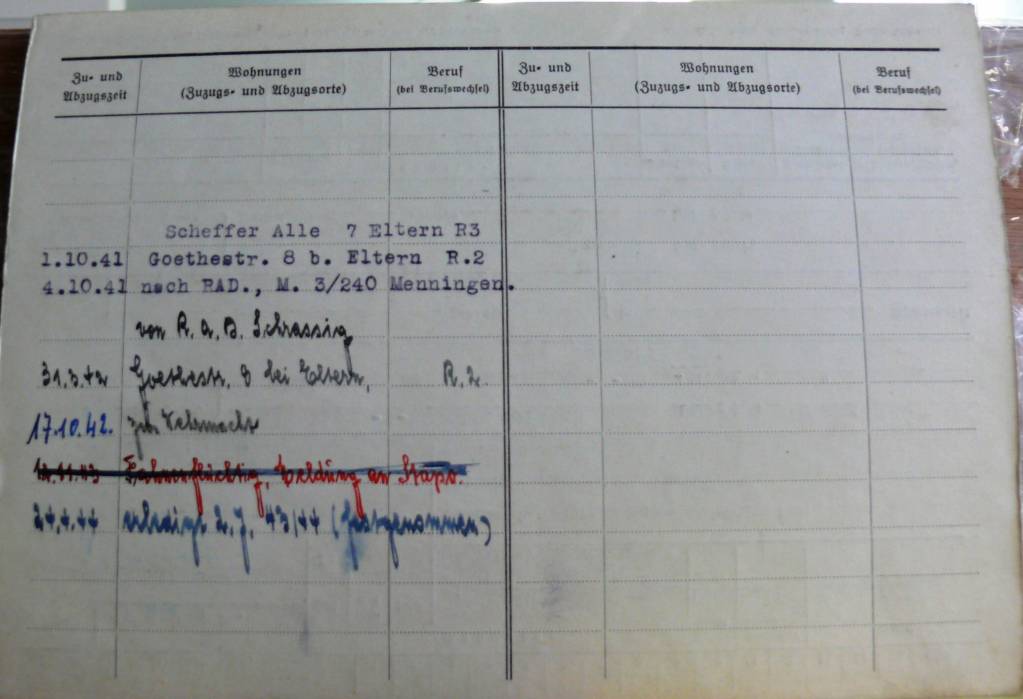 Zu- und Abzugszeit
Wohnungen (Zuzugs- und Abzugsorte)
Beruf (bei Berufswechsel)
Zu- und Abzugszeit
Wohnungen (Zuzugs- und Abzugsorte)
Beruf (bei Berufswechsel)
Scheffer Alle 7 Eltern R3
1.10.41 Goethestr. 8 b. Eltern R.2
4.10.41 nach RAD., M. 3/240 Menningen.
von R. A. D. Schrassig
31.3.42 Goethestr. 8 bei Eltern, R.2.
17.10.42. zur Wehrmacht
12.11.43 Fahnenflüchtig, Meldung an Stapo.
24.4.44 erledigt L.J. 43/44 (Festgenommen)